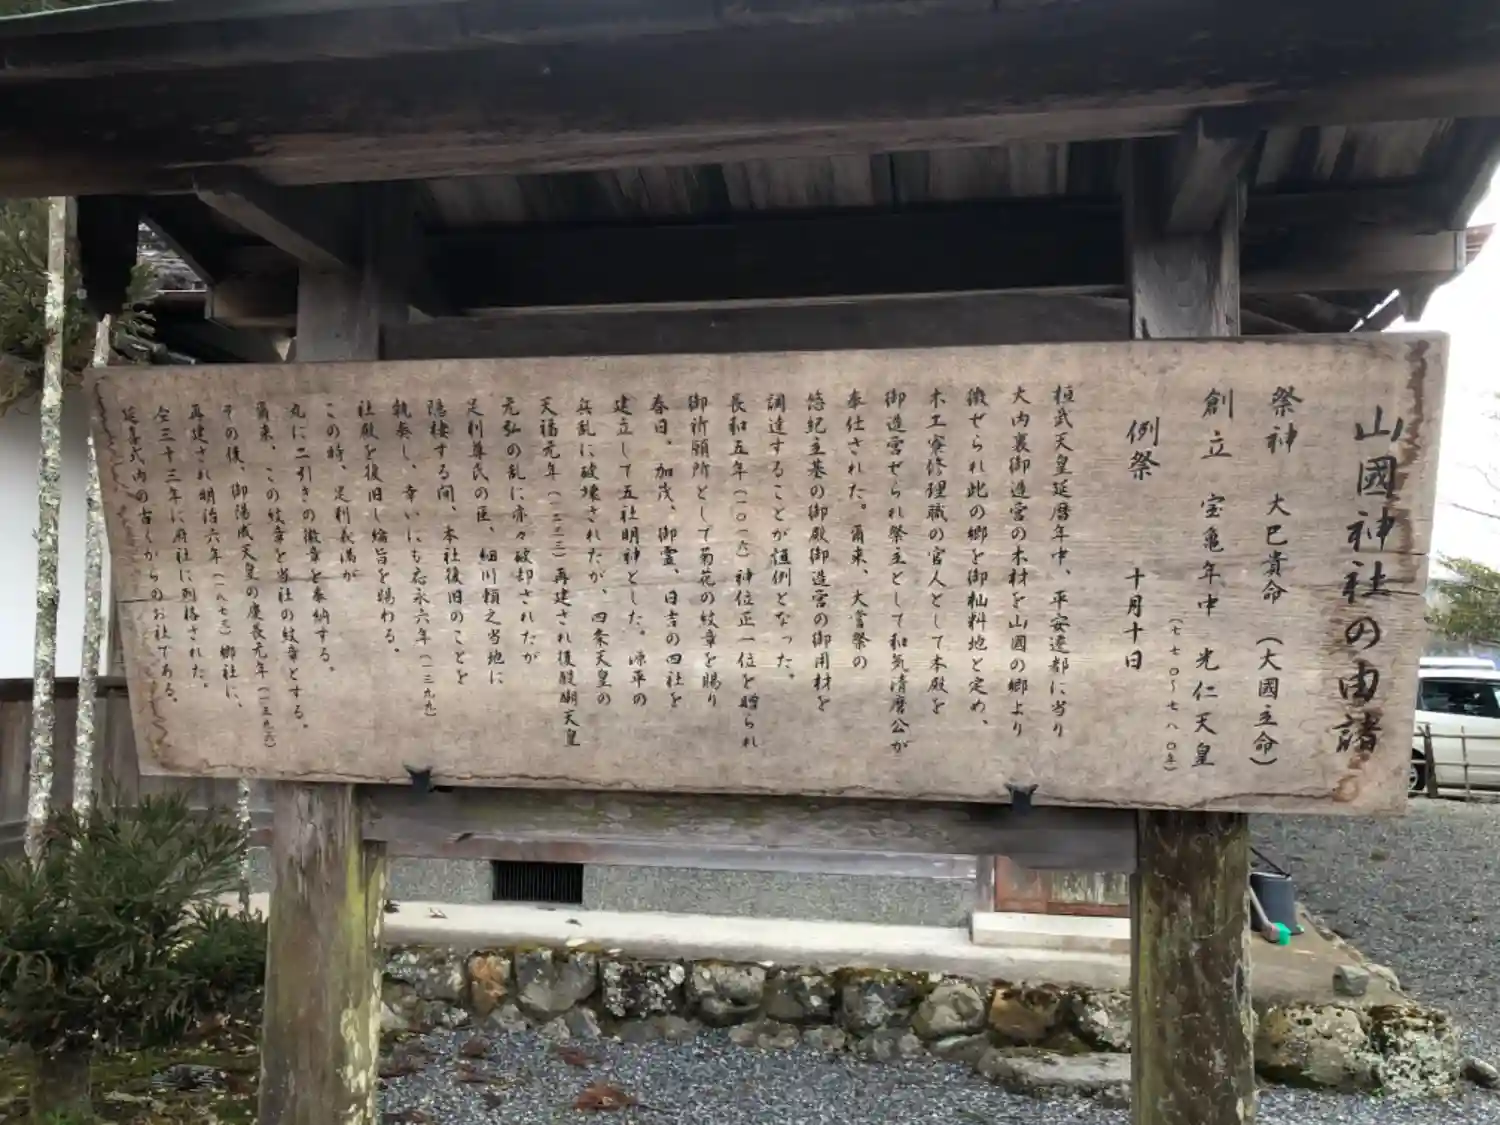 山國神社の由諸
祭神 大巳貴命(大國主命)
創立 宝亀年中 光仁天皇
(七七〇〜七八〇年)
例祭 十月十日
桓武天皇延暦年中、平安遷都に当り
大内裏御造宮の木材を山國の郷より
徴ぜられ此の郷を御杣料地と定め、
木工寮修理職の官人として本殿を
御造営ぜられ祭主として和気清麿公が
奉仕された。爾来、大嘗祭の
悠紀主基の御殿御造営の御用材を
調達することが恒例となった。
長和五年(一〇一六)神位正一位を贈られ
御祈願所として菊花の紋章を賜り
春日、加茂、御霊、日吉の四社を
建立して五社明神とした。源平の
兵乱に破壊されたが、四条天皇の
天福元年(一二三三)再建され後醍醐天皇
元弘の乱に亦々破却されたが
足利尊氏の臣、細川頼之当地に
隠棲する間、本社後旧のことを
執奏し、幸いにも応永六年(一三九九)
社殿を後旧し綸旨を賜わる。
この時、足利義満が
丸に二引きの徽章を奉納する。
爾来、この紋章を当社の紋章とする。
その後、御陽成天皇の慶長元年(一五九六)
再建され明治六年(一八七三)郷社に、
仝三十三年に府社に列格された。
延喜式内の古くからのお社である。